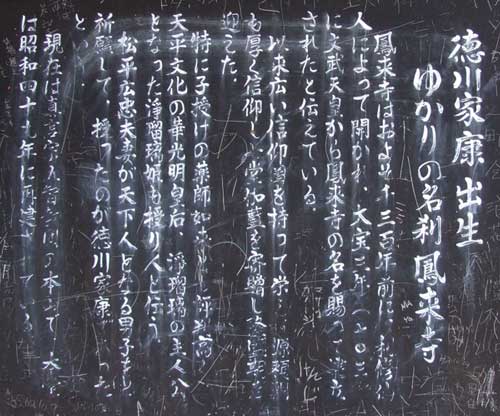 徳川家康出生
ゆかりの名刹鳳来寺
鳳来寺はおよそ千三百年前に利修仙
人によって開かれ、大宝三年(七〇三
に文武天皇から鳳来寺の名を賜って
されたと伝えている。
以来広い信仰を持って栄 源頼
も厚く信仰し、堂伽藍を寄
迎えた。
特に子授けの薬師如来 評判高
天平文化の華光明皇后、浄瑠璃の主人公
となった浄瑠璃姫も授り人と伝う。
松平広忠夫妻が天下人となる男子を
祈願して、授ったのが徳川家康 った
という。
現在は真言宗 の本 で、本
は昭和四十九年に再建 ている。